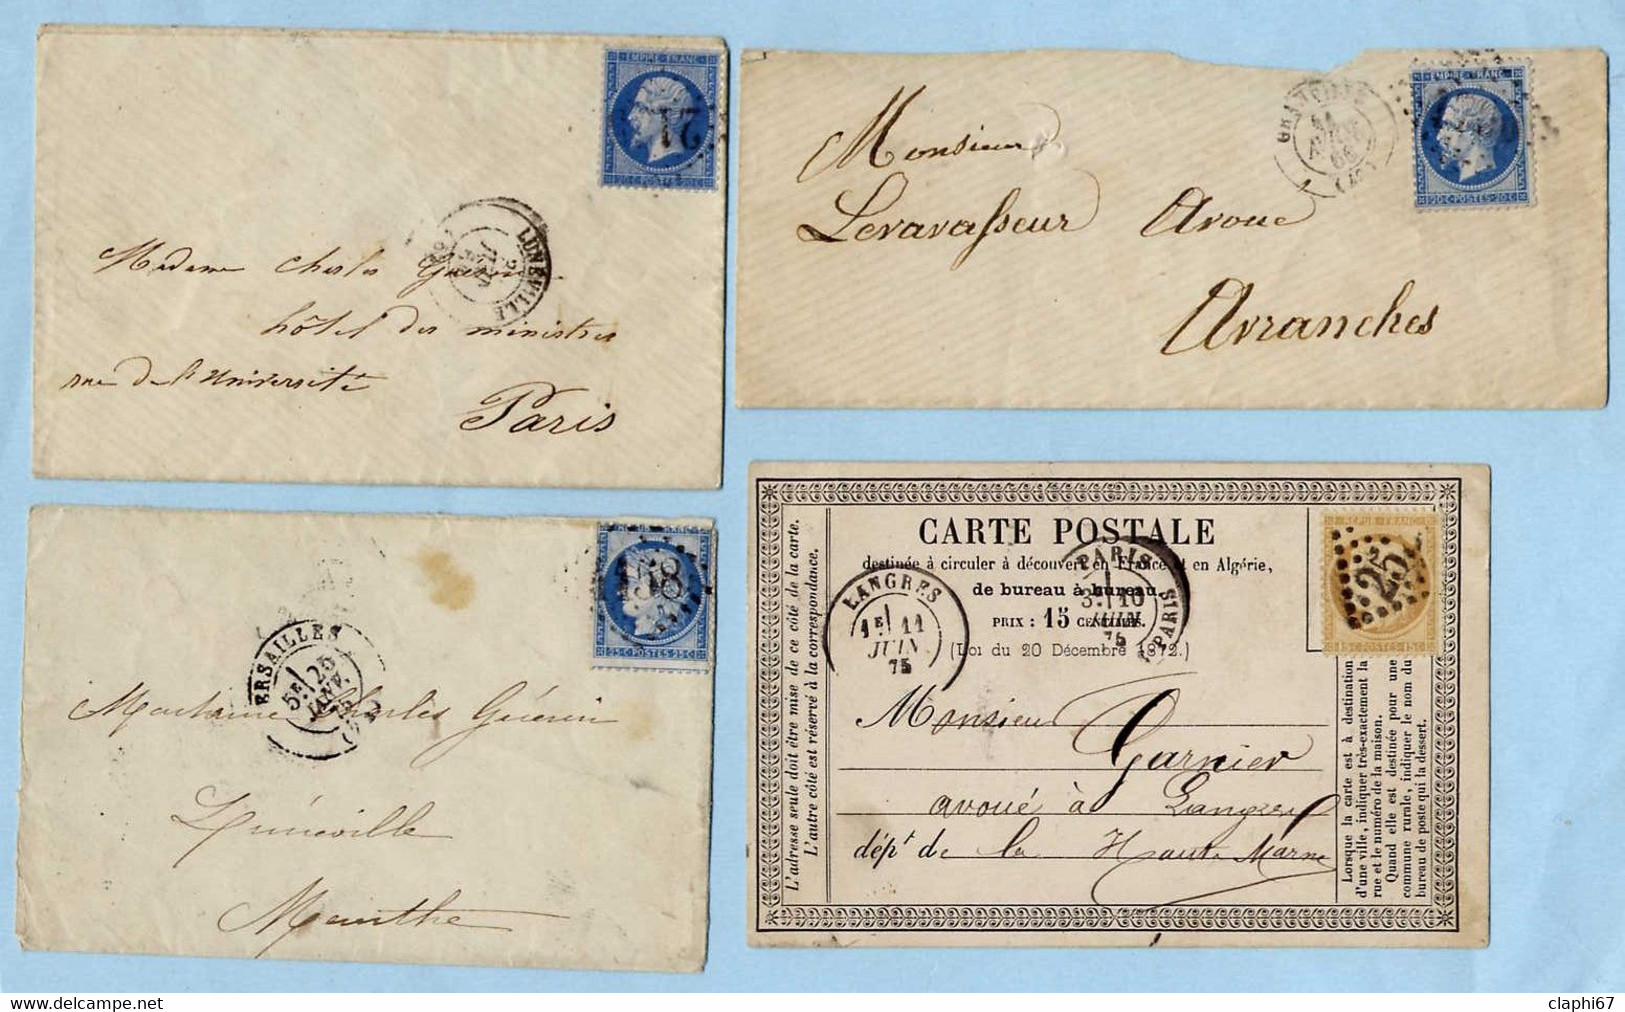 EMPIRE FRANC
21
20 C POSTES 20 C
LUNEVILLE
Madame Charles Guérin
hôtel des ministres
rue de l'Université
Paris
EMPIRE FRANC
20 C POSTES 20 C
GRANVILLE
66
Monsieur
Levavasseur Avoué
Avranches
158
25 C POSTES 25 C
VERSAILLES
5E 25
JANV.
75
Madame Charles Guérin
Lunéville
Meurthe
CARTE POSTALE
destinée à circuler à découvert en France et en Algérie,
de bureau à bureau.
PRIX : 15 CENTIMES.
(Loi du 20 Décembre 1872.)
LANGRES
1E 11
JUIN
75
PARIS
3E 10
JUIN
75
REPUB FRANC
25
15 C POSTES 15 C
Monsieur
Garnier
avoué à Langres
dépt de la Haute Marne
L'adresse seule doit être mise de ce côté de la carte.
L'autre côté est réservé à la correspondance.
Lorsque la carte est à destination
d'une ville, indiquer très-exactement la
rue et le numéro de la maison.
Quand elle est destinée pour une
commune rurale, indiquer le nom du
bureau de poste qui la dessert.
claphi67